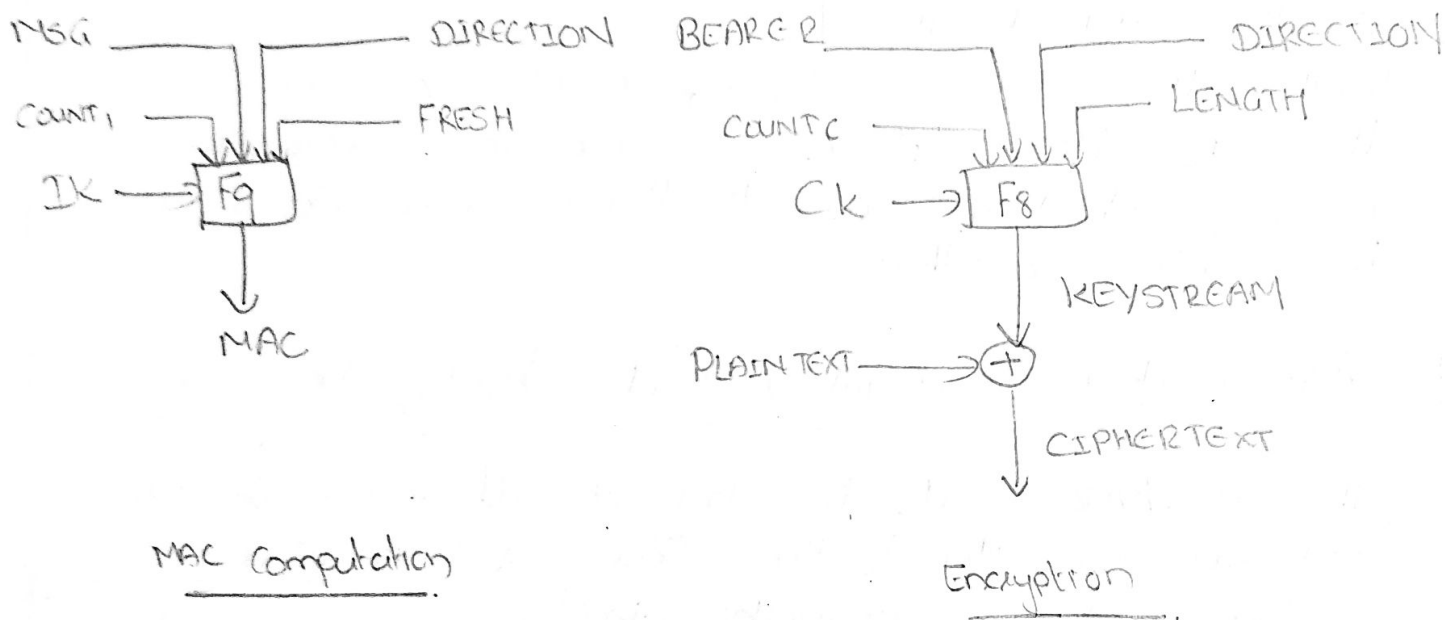 MSG DIRECTION
COUNTI FRESH
IK F9
MAC
MAC Computation
BEARER DIRECTION
COUNTC LENGTH
CK F8
KEYSTREAM
PLAINTEXT +
CIPHERTEXT
Encryption